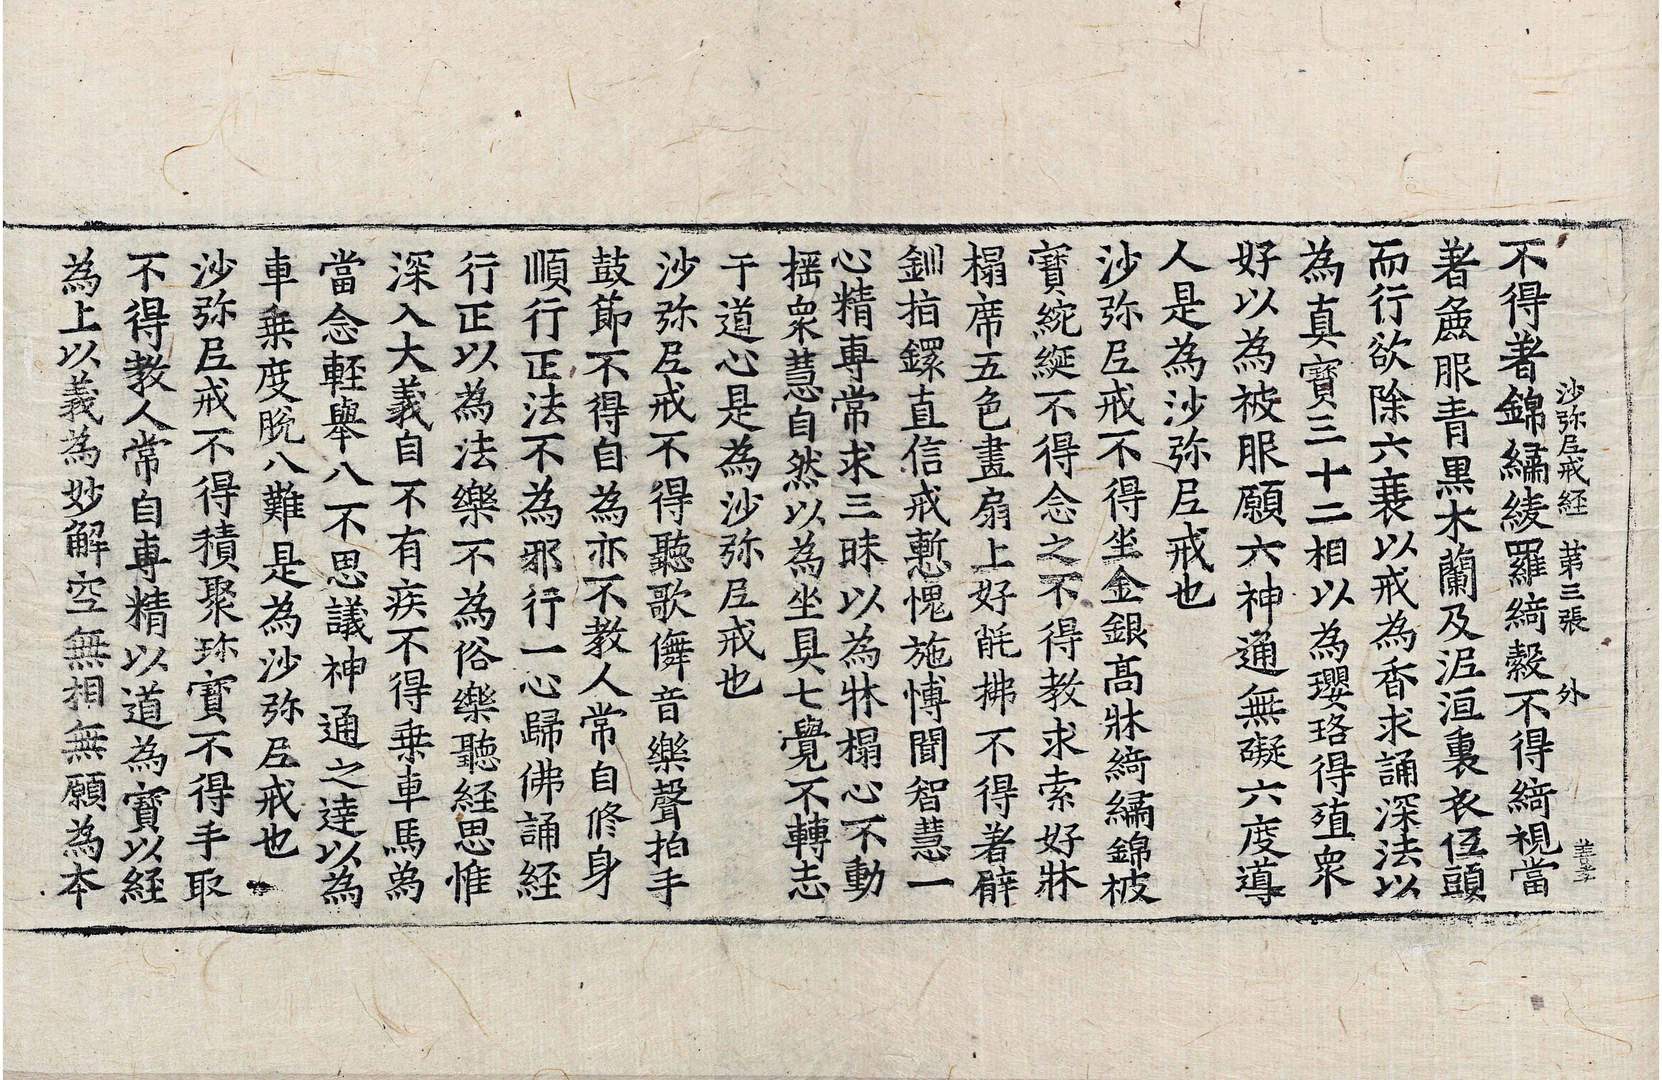 沙弥尼戒経 苐三張 外
不得著錦繡綾羅綺縠不得綺視當
著麁服青黒木蘭及泥洹裏衣伍頭
而行欲除六衰以戒為香求誦深法以
為真寳三十二相以為瓔珞得殖衆
好以為被服願六神通無礙六度導
人是為沙弥尼戒也
沙弥尼戒不得坐金銀髙牀綺繡錦被
寳綩綖不得念之不得教求索好牀
榻席五色畫扇上好㲚拂不得著臂
釧指鐶直信戒慙愧施愽聞智慧一
心精専常求三昧以為牀榻心不動
揺衆慧自然以為坐具七覺不轉志
于道心是為沙弥尼戒也
沙弥尼戒不得聽歌儛音樂聲拍手
鼓節不得自為亦不教人常自修身
順行正法不為邪行一心歸佛誦経
行正以為法樂不為俗樂聽経思惟
深入大義自不有疾不得乗車馬為
當念輕舉八不思議神通之達以為
車乗度脫八難是為沙弥尼戒也
沙弥尼戒不得積聚珎寳不得手取
不得教人常自専精以道為寳以経
為上以義為妙解空無相無願為本